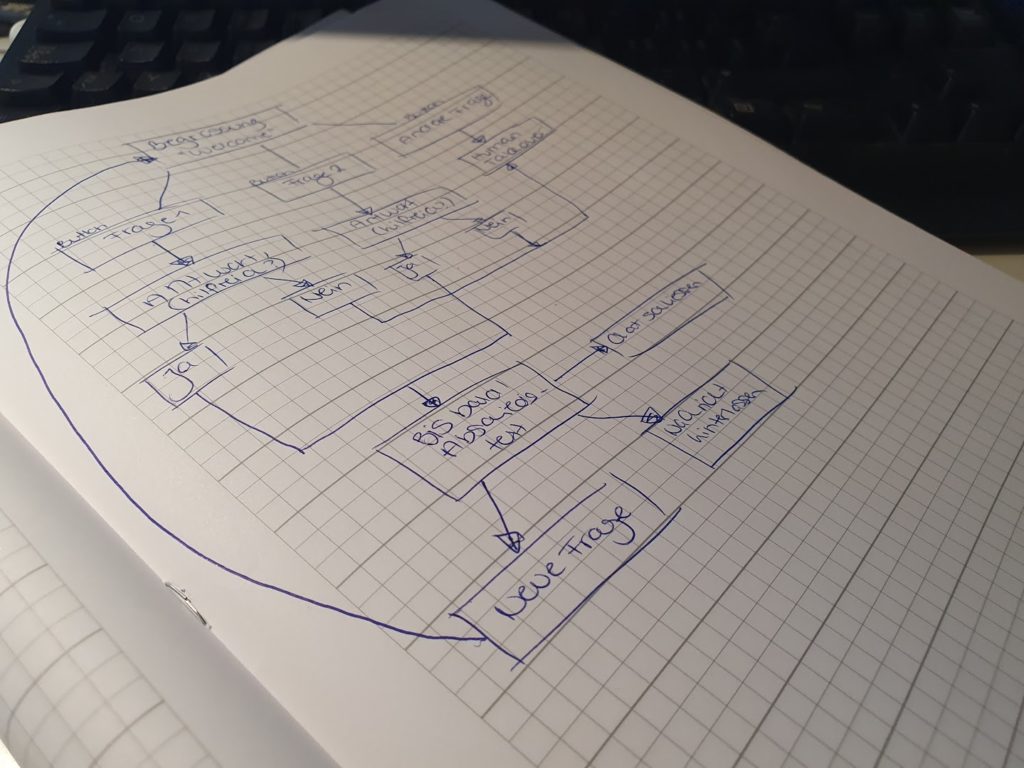 Begrüßung
"Welcome"
Button
Andere Frage
Human
Takeover
Button
Frage 2
Button
Frage 1
Antwort
(hilfreich?)
Nein
Ja
Antwort
(hilfreich?)
Nein
Ja
Bis bald!
Abschieds-
text
Chat schließen
Nachricht
hinterlassen
Neue Frage